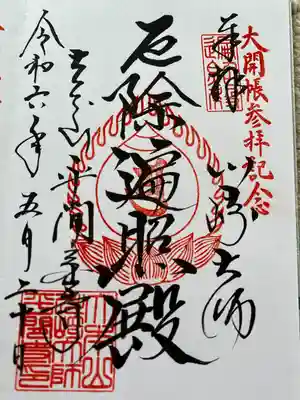 大開帳参拝記念
奉拝
川崎大師
厄除遍照殿
大本山平間寺
令和六年五月二十日